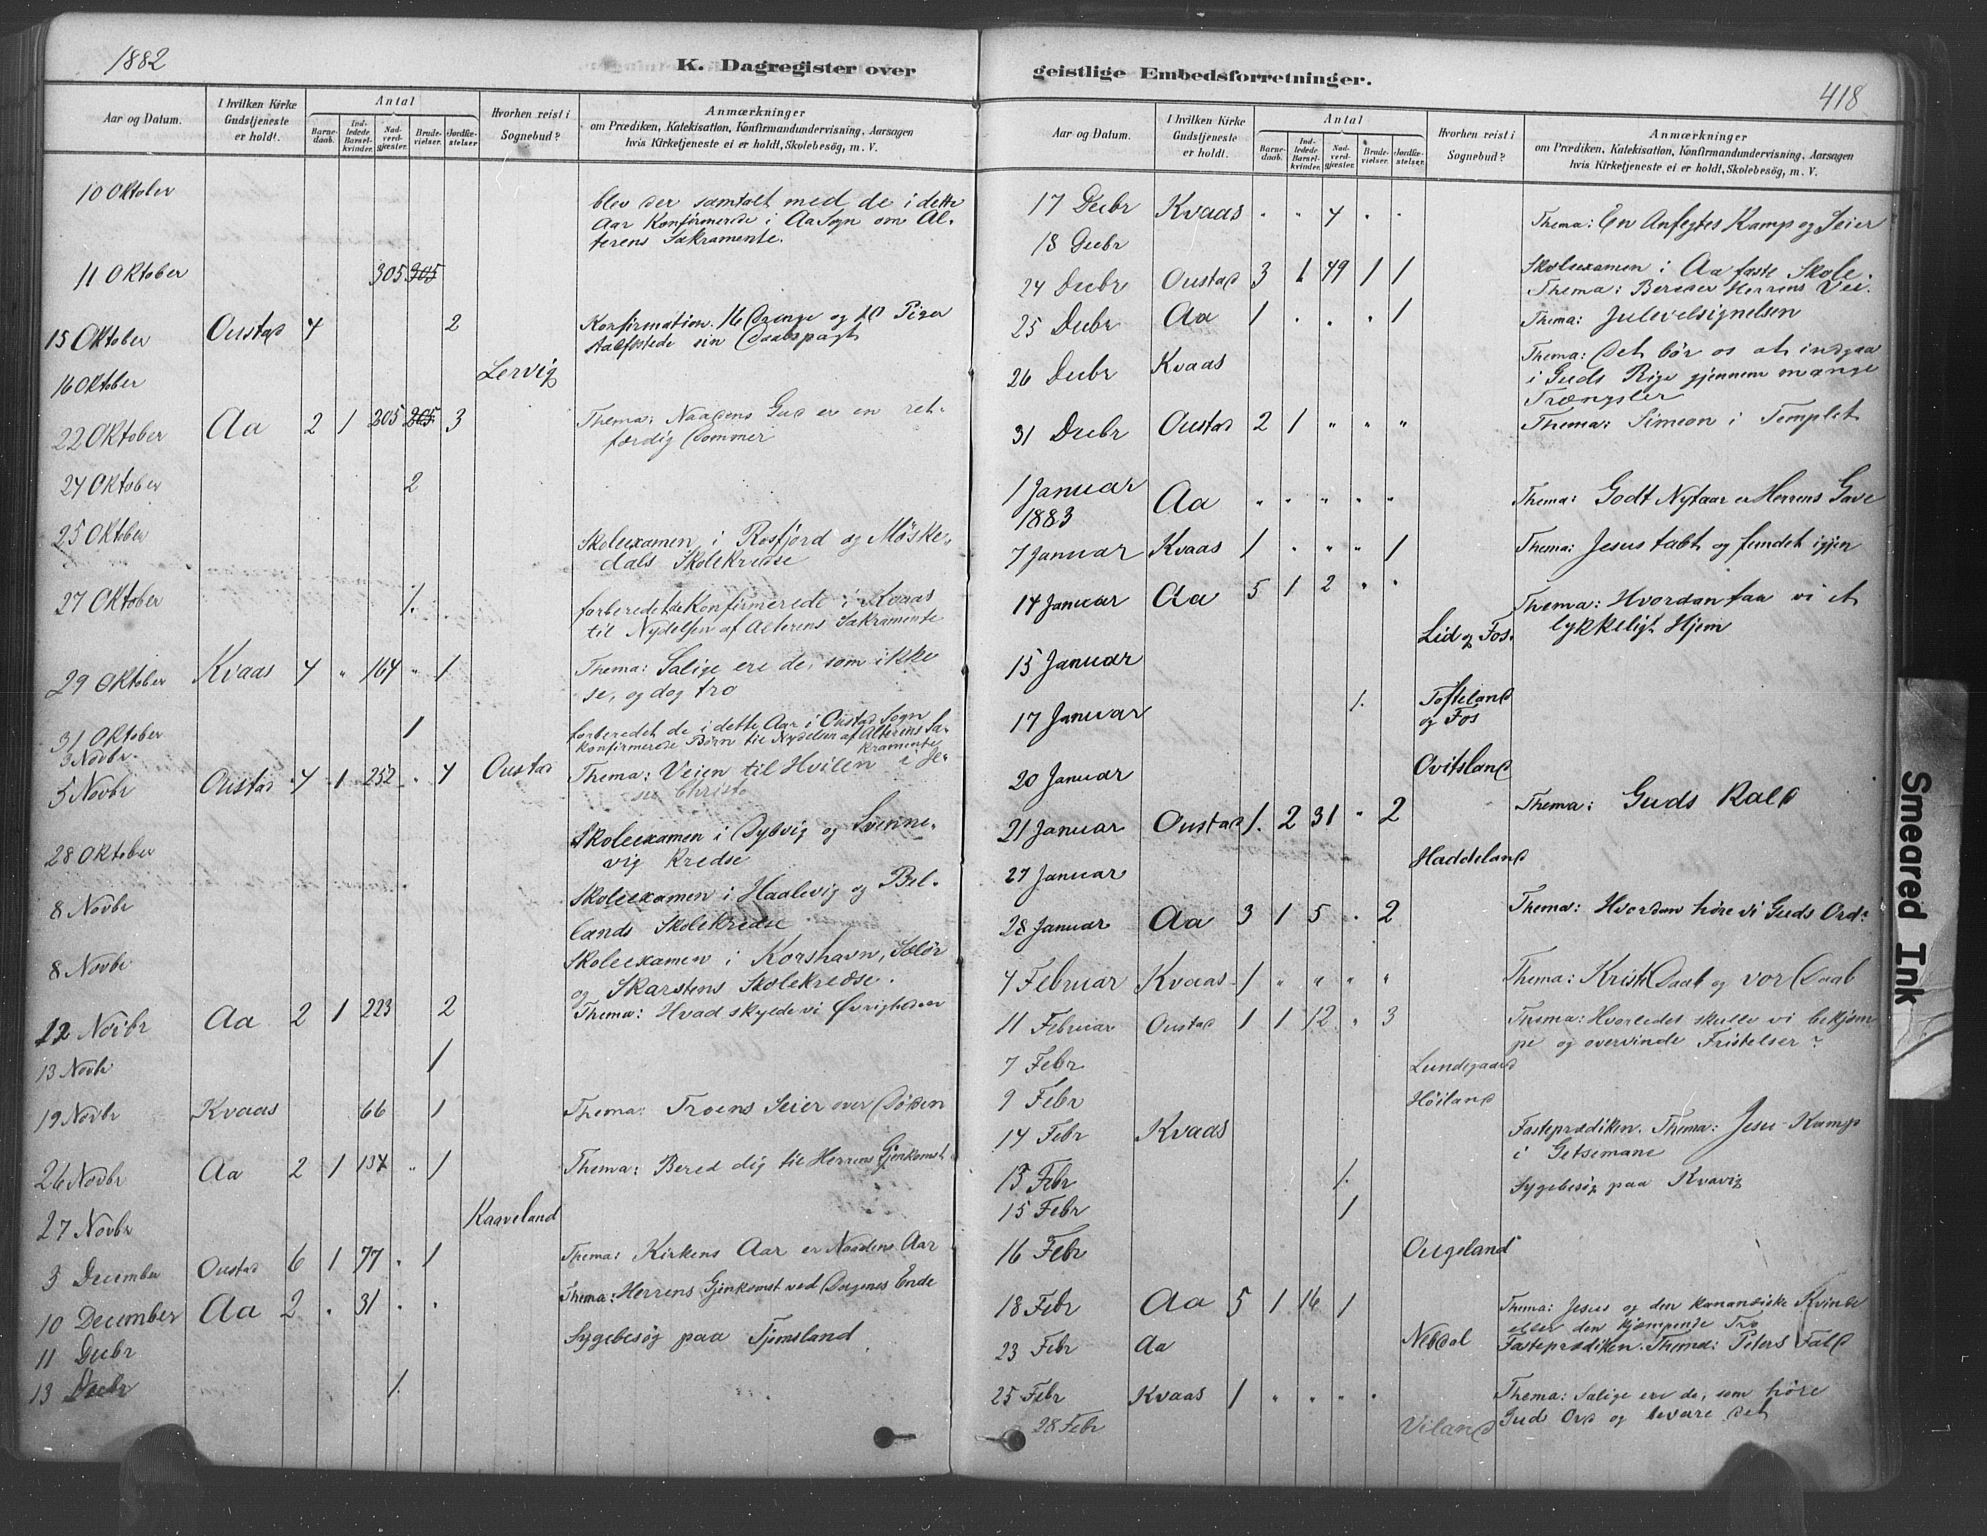 1882
K. Dagregister over
Aar og Datum.
I hvilken Kirke Gudstjeneste er holdt.
Antal
Barnedaab.
Indledede Barselkvinder.
Nadverdgjæster.
Brudevielser.
Jordfæstelser
Hvorhen reist i Sognebud?
Anmærkninger
om Prædiken, Katekisation, Konfirmandundervisning, Aarsagen
hvis Kirketjeneste ei er holdt, Skolebesøg, m. V.
10 Oktober blev der samtalt med de i dette
Aar Konfirmerede i Aa Sogn om Al-
terens Sakramente.
11 Oktober 305 305
15 Oktober Oustad 4 2 Konfirmation. 16 Drenge og 10 Piger
stadfæstede sin Daabspagt
16 Oktober Lervig
22 Oktober Aa 2 1 205 205 3 Thema: Naadens Gud er en ret-
færdig Dommer
24 Oktober 2
25 Oktober Skoleexamen i Rosfjord og Møske-
dals Skolekredse
27 Oktober 1. forberedet de Konfirmerede i Kvaas
til Nydelsen af Alterens Sakramente
29 Oktober Kvaas 4 " 164 " 1 Thema: Salige ere de, som ikke
se, og dog tro
31 Oktober 1 forberedet de i dette Aar i Oustad Sogn
3 Novbr. konfirmerede Børn til Nydelsen af Alterens Sa-
kramente
5 Novbr Oustad 4 1 252 " 4 Oustad Thema: Veien til Hvilen i Je-
su Christo
28 Oktober Skoleexamen i Dybvig og Svenne-
vig Kredse
8 Novbr Skoleexamen i Haalevig og Bel-
lands Skolekredse
8 Novbr Skoleexamen i Korshavn, Selør
og Skarstens Skolekredse.
12 Novbr Aa 2 1 223 2 Thema: Hvad skylde vi Øvrigheden
13 Novbr 1
19 Novbr Kvaas 66 1 Thema: Troens Seier over Døden
26 Novbr Aa 2 1 134 " 1 Thema: Bered dig til Herrens Gjenkomst
27 Novbr Kaaveland
3 December Oustad 6 1 77 " 1 Thema: Kirkens Aar er Naadens Aar
10 December Aa 2 " 31 " " Thema: Herrens Gjenkomst ved Dagenes Ende
11 Decbr Sygebesøg paa Tjomsland
13 Decbr 1.
geistlige Embedsforretninger.
418
Aar og Datum.
I hvilken Kirke Gudstjeneste er holdt.
Antal
Barnedaab.
Indledede Barselkvinder.
Nadverdgjæster.
Brudevielser.
Jordfæstelser.
Hvorhen reist i Sognebud?
Anmærkninger
om Prædiken, Katekisation, Konfirmandundervisning, Aarsagen
hvis Kirketjeneste ei er holdt, Skolebesøg, m. V.
17 Decbr Kvaas " " 4 " " Thema: En Anfegtes Kamp og Seier
18 Decbr Skoleexamen i Aa faste Skole.
24 Decbr Oustad 3 1 49 1 1 Thema: Bereder Herrens Vei.
25 Decbr Aa 1 " " " 1 Thema: Julevelsignelsen
26 Decbr Kvaas Thema: Det bør os at indgaa
i Guds Rige gjennem mange
Trængsler
31 Decbr Oustad 2 1 " " " Thema: Simeon i Templet
1 Januar
1883 Aa " " " " " Thema: Godt Nytaar er Herrens Gave
7 Januar Kvaas 1 " " " 1 Thema: Jesus tabt og fundet igjen
14 Januar Aa 5 1 2 " " Thema: Hvordan faa vi et
lykkeligt Hjem
15 Januar Lid og Fos.
17 Januar 1. Tofteland
og Fos
20 Januar Ovitsland
21 Januar Oustad 1. 2 31 " 2 Thema: Guds Kald
27 Januar Haddeland
28 Januar Aa 3 1 5 " 2 Thema: Hvordan høre vi Guds Ord?
4 Februar Kvaas 1 " " " " Thema: Kristi Daab og vor Daab
11 Februar Oustad 1 1 12 " 3 Thema: Hvorledes skulle vi bekjæm-
pe og overvinde Fristelser?
7 Febr Lundegaard
9 Febr Høiland
14 Febr Kvaas Fasteprædiken. Thema: Jesu Kamp
i Getsemane
13 Febr 1. Sygebesøg paa Kvavig
15 Febr 1
16 Febr Ougeland
18 Febr Aa 5 1 16 1 Thema: Jesus og den kananæiske Kvinde
eller den kjæmpende Tro
23 Febr Aa Nebdal Fasteprædiken. Thema: Peters Fald
25 Febr Kvaas 1 " " " " Thema: Salige ere de, som høre
Gud Ord og bevare det
28 Febr Viland
Smeared Ink